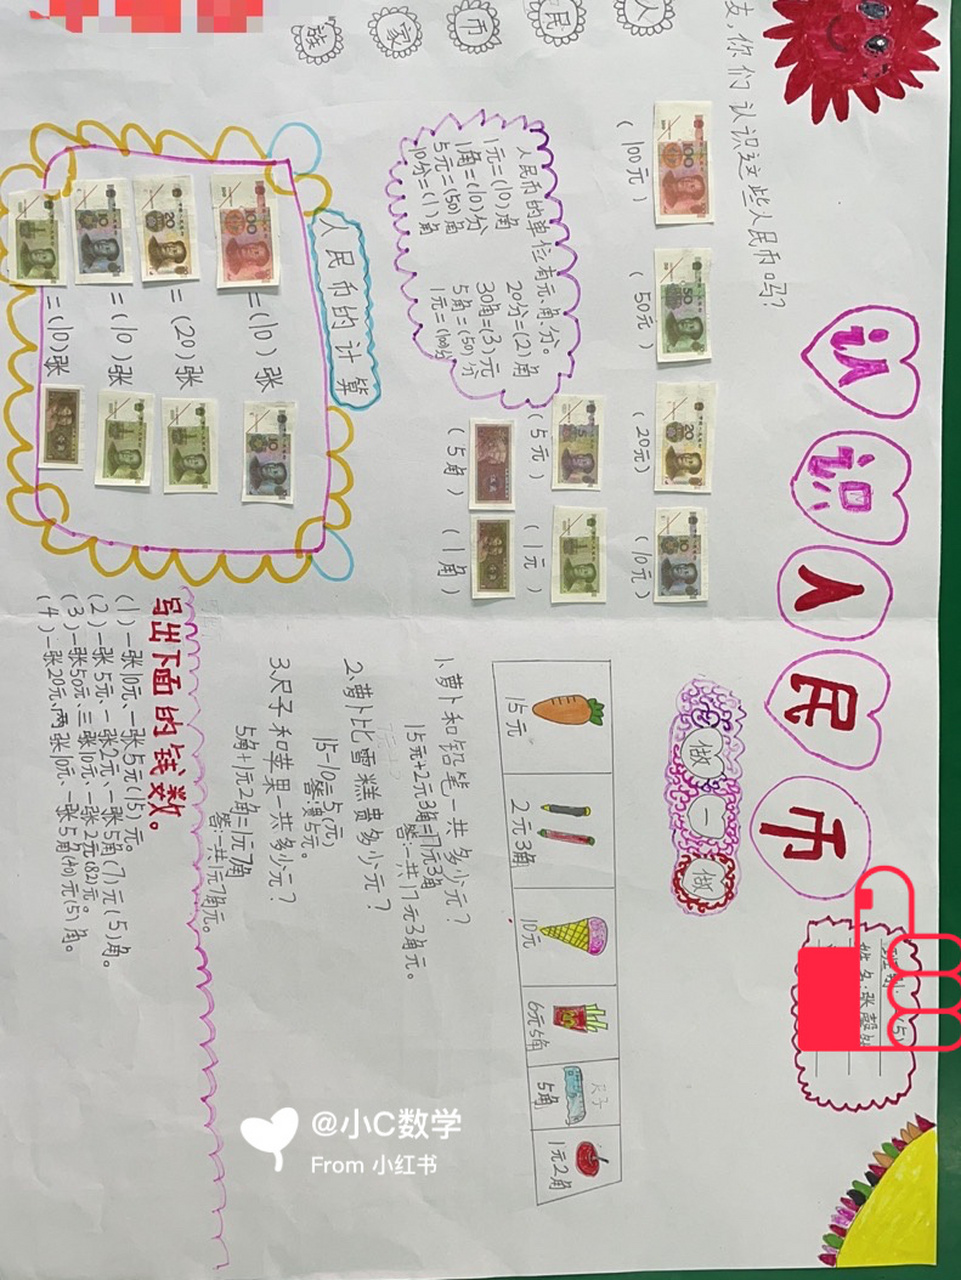 认识人民币
人民币家族
友,你们认识这些人民币吗?
(100元)
(50元)
(20元)
(10元)
(5元)
(1元)
(5角)
(1角)
人民币的单位有元、角、分。
1元=(10)角
20分=(2)角
1角=(10)分
30角=(3)元
5元=(50)角
5角=(50)分
10分=(1)角
1元=(100)分
人民币的计算
=(10)张
=(20)张
=(10)张
=(10)张
做一做
15元
2元3角
10元
6元5角
尺子
5角
1元2角
1、萝卜和铅笔一共多少元?
15元+2元3角=17元3角
答:一共17元3角元。
2、萝卜比雪糕贵多少元?
15-10=5(元)
答:贵5元。
3、尺子和苹果一共多少元?
5角+1元2角=1元7角
答:一共1元7角元。
写出下面的钱数。
(1)一张10元、一张5元(15)元。
(2)一张5元、一张2元、一张5角(7)元(5)角。
(3)一张50元、三张10元、一张2元(82)元。
(4)一张20元、两张10元、一张5角(40)元(5)角。
班别:
(5)
姓名:张馨
@小C数学
From 小红书